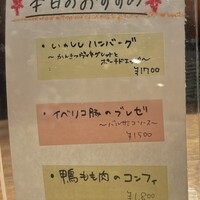 本日のおすすめ
・いのししハンバーグ
¥1700
・イベリコ豚のブレゼ
〜バルサミコソース〜
¥1500
・鴨もも肉のコンフィ
¥1,800